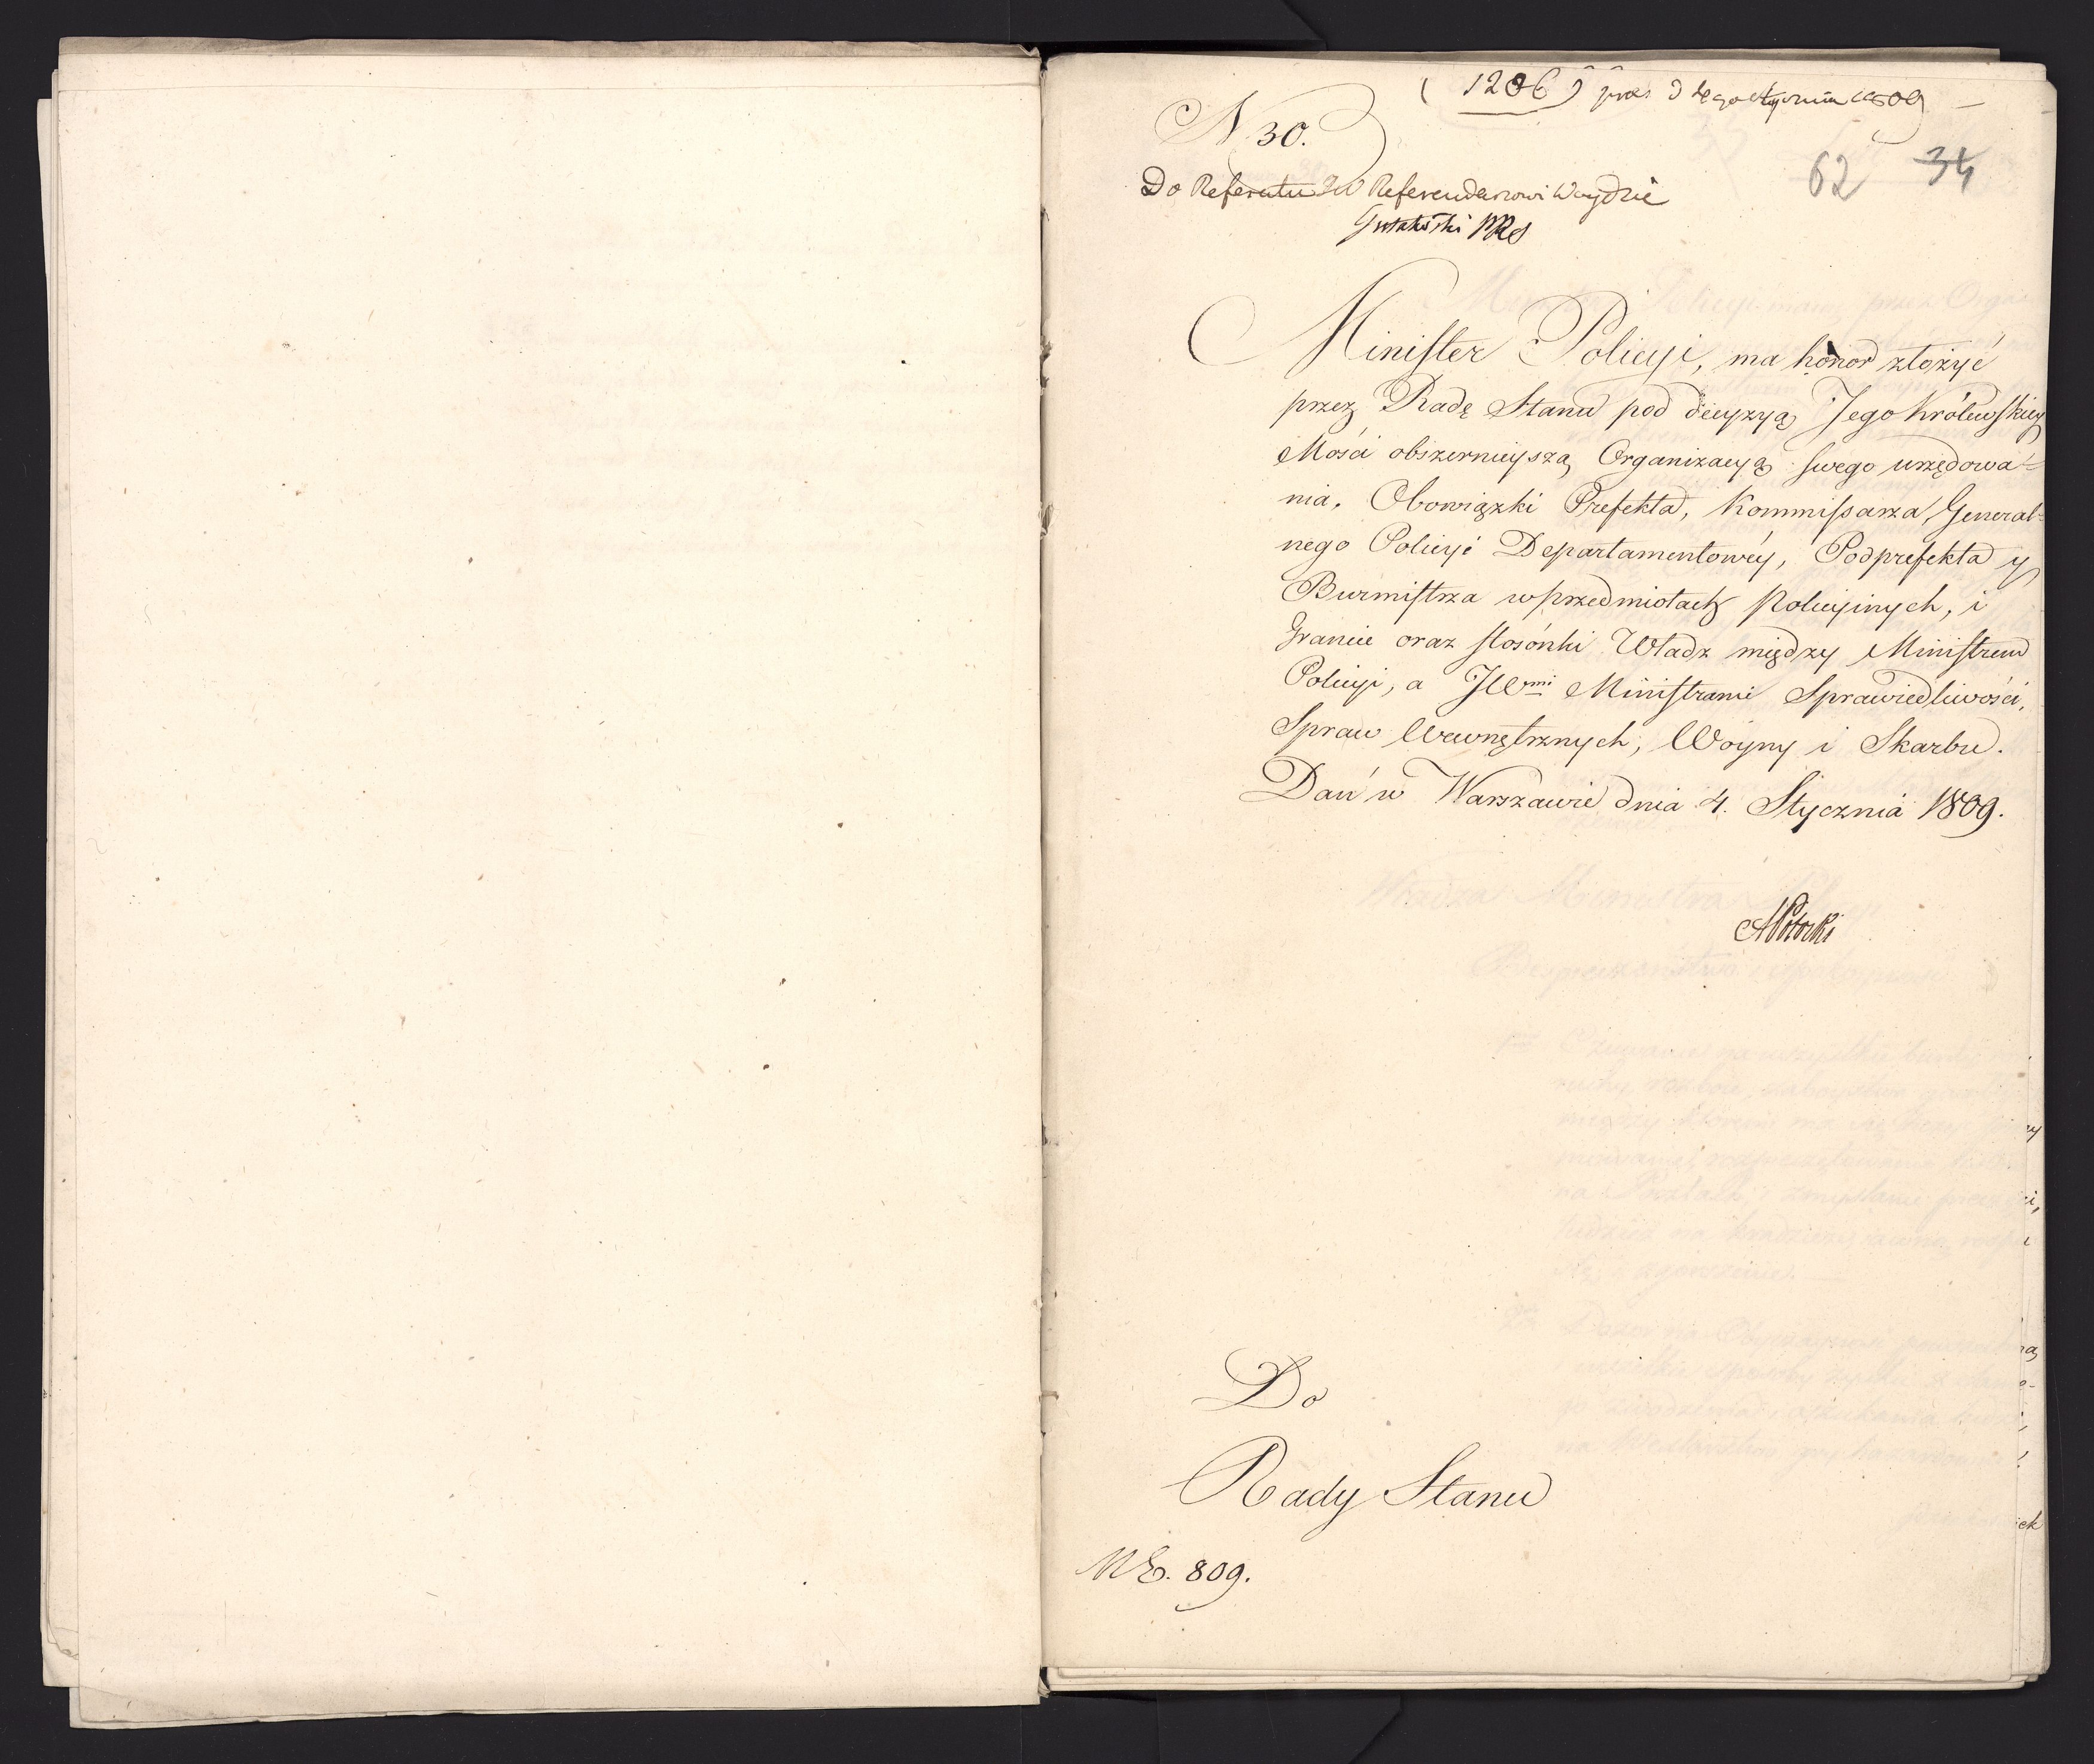 (1206) praes d 4go stycznia 1809
N 30.
62 34
Do Referatu JW Referendarzowi Woydzie
Gutakowski PRS
Minister Policyi, ma honor złożyć
przez Radę Stanu pod decyzyą Jego Królewskiey
Mości obszernieyszą Organizacyą swego urzędowa=
nia, Obowiązki Prefekta, Kommissarza General=
nego Policyi Departamentowéy, Podprefekta y
Burmistrza w przedmiotach Policyinych, i
Granice oraz stosónki Władz między Ministrem
Policyi, a JWmi Ministrami Sprawiedliwości,
Spraw Wewnętrznych, Woyny i Skarbu.
Dań w Warszawie dnia 4. Stycznia 1809.
APotocki
Do
Rady Stanu
809.